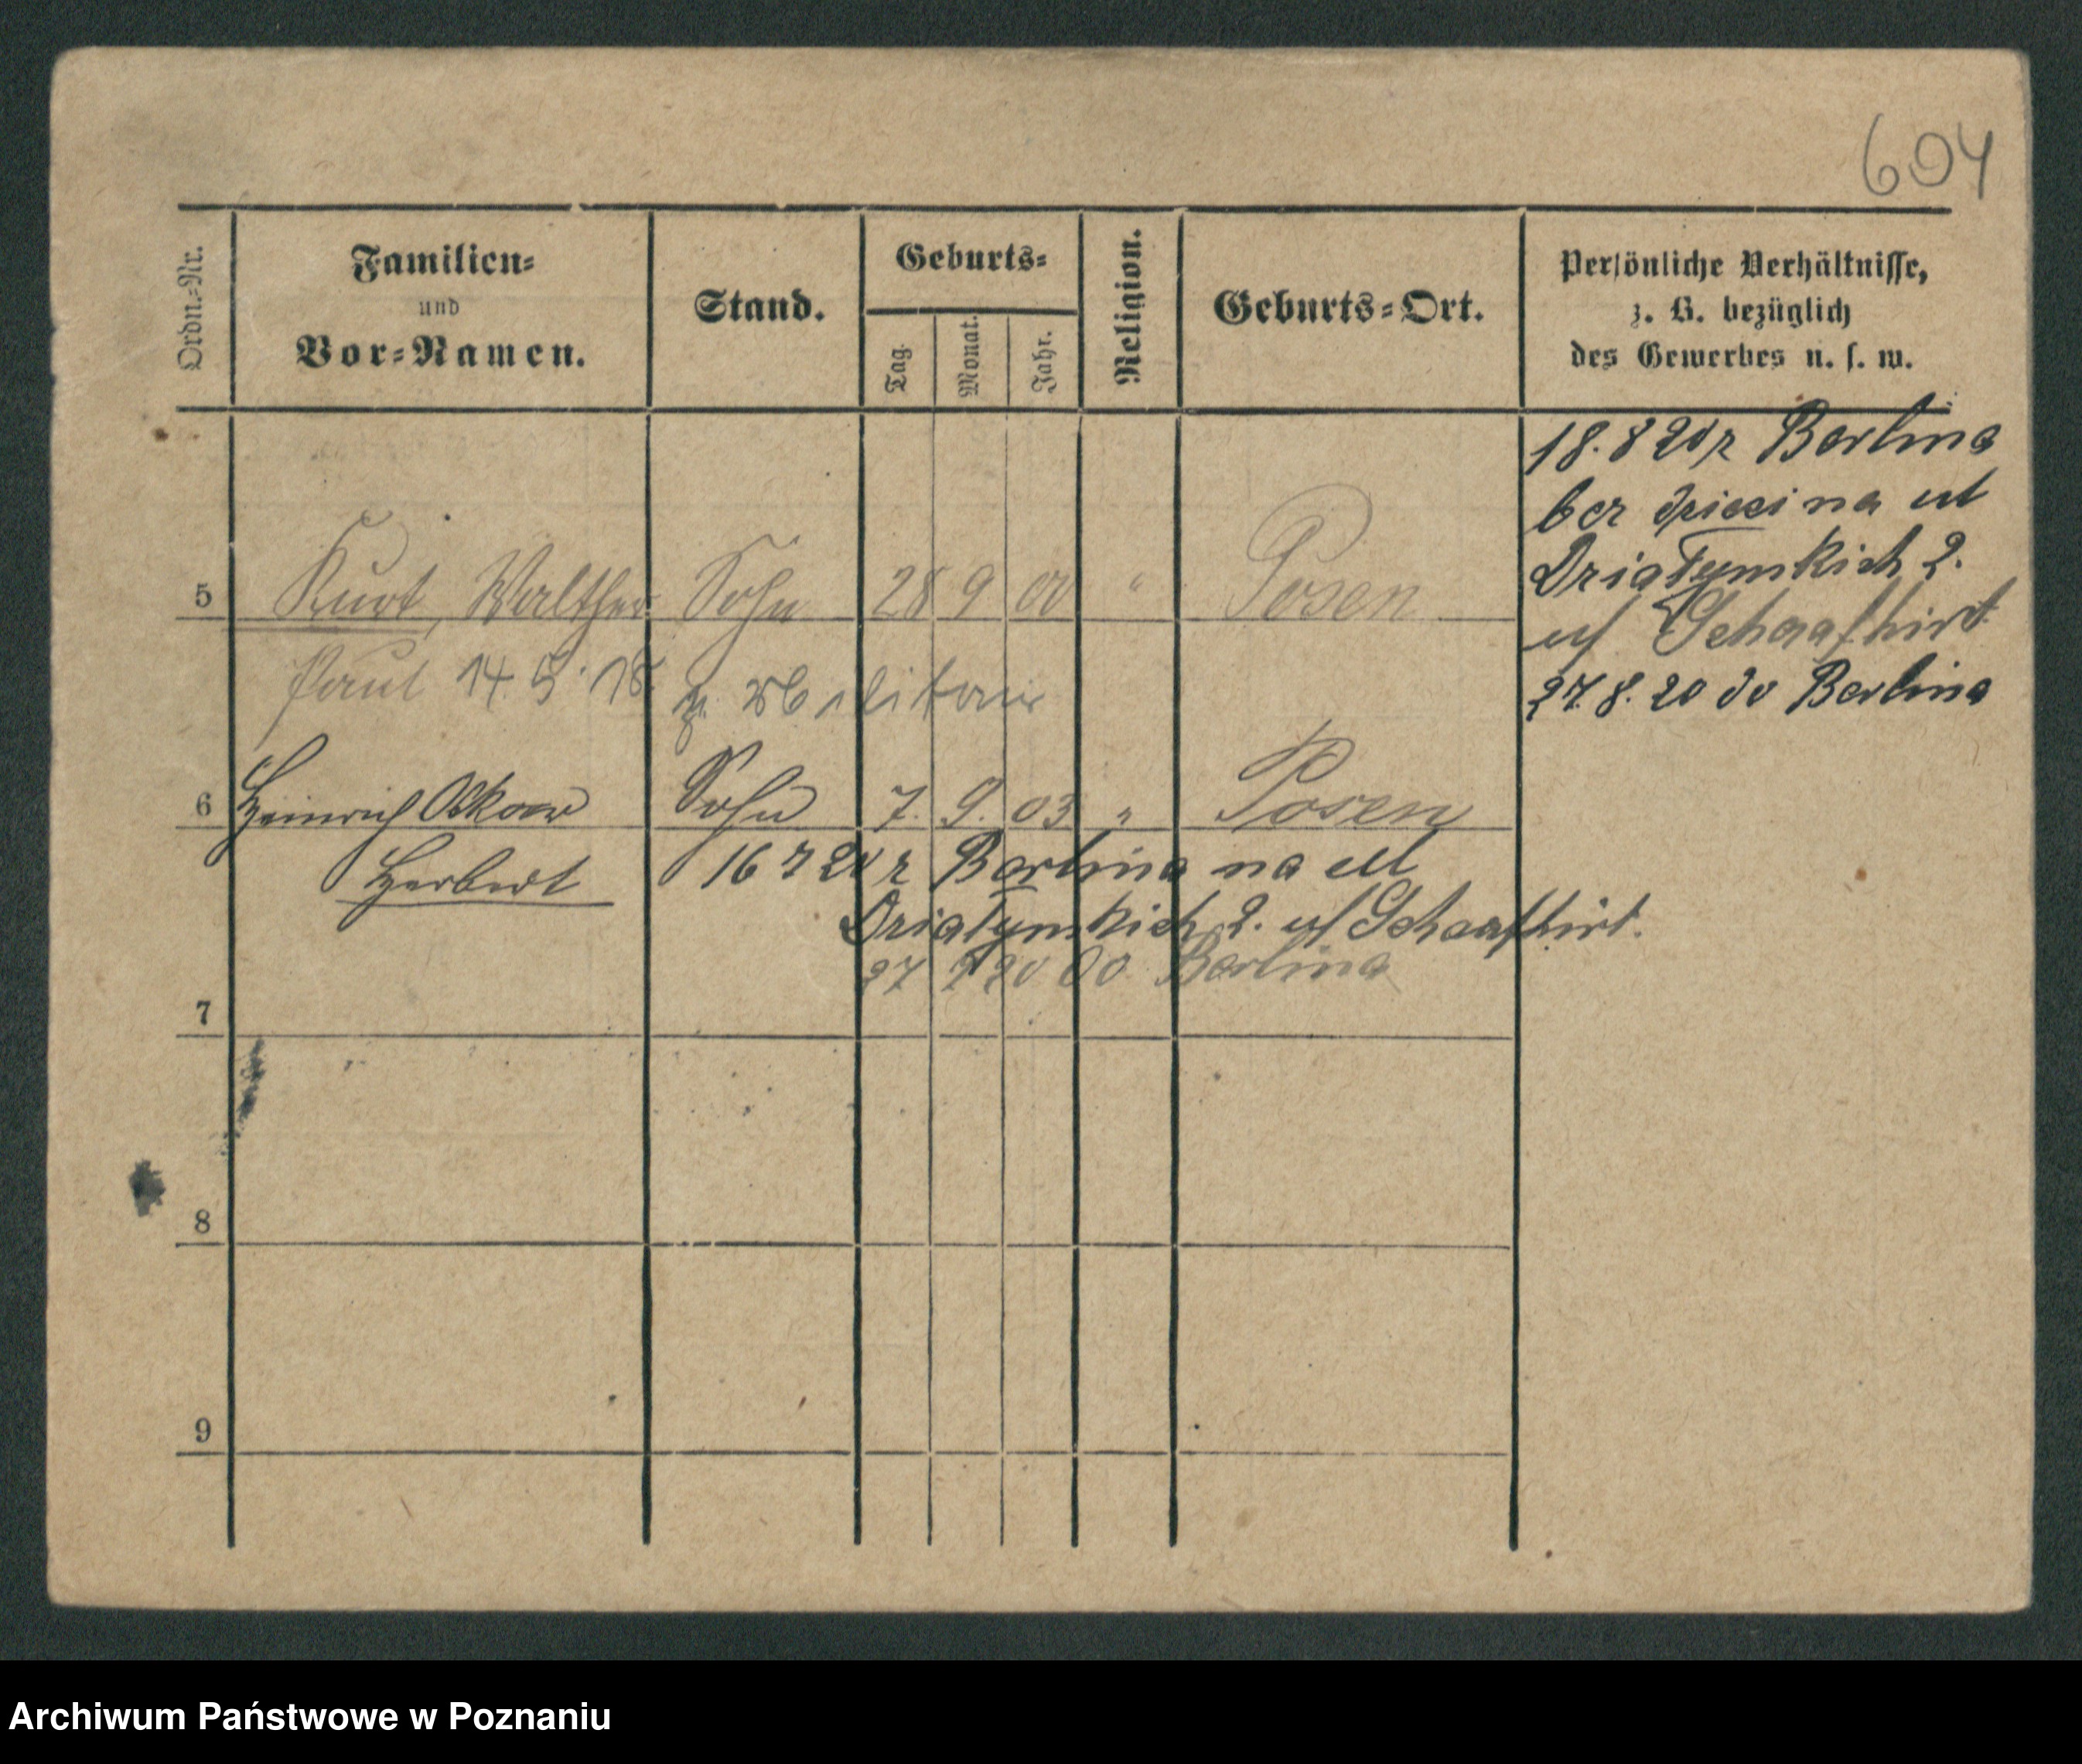 604
Ordn.-Nr.
Familien-
und
Vor-Namen.
Stand.
Geburts-
Tag.
Monat.
Jahr.
Religion.
Geburts-Ort.
Persönliche Verhältnisse,
z. B. bezüglich
des Gewerbes u. s. w.
5 Kurt, Walther Sohn 28 9 00 " Posen
Paul 14. 5. 18. z. Militair
6 Heinrich Oskar Sohn 7. 9. 03 " Posen
Herbert
16 7 20 z Berlina na ul
Dziatynskich 2. u/ Schaafhirt.
27 20 do Berlina
18. 8 20 z Berlina
bez dzieci na ul
Dziatynskich 2.
u/ Schaafhirt
27. 8. 20 do Berlina
7
8
9
Archiwum Państwowe w Poznaniu